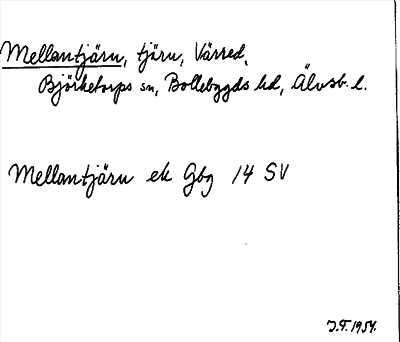 Mellantjärn, tjärn, Värred,
Björketorps sn, Bollebygds hd, Älvsb. l.
Mellantjärn ek Gbg 14 SV
J.F. 1954.